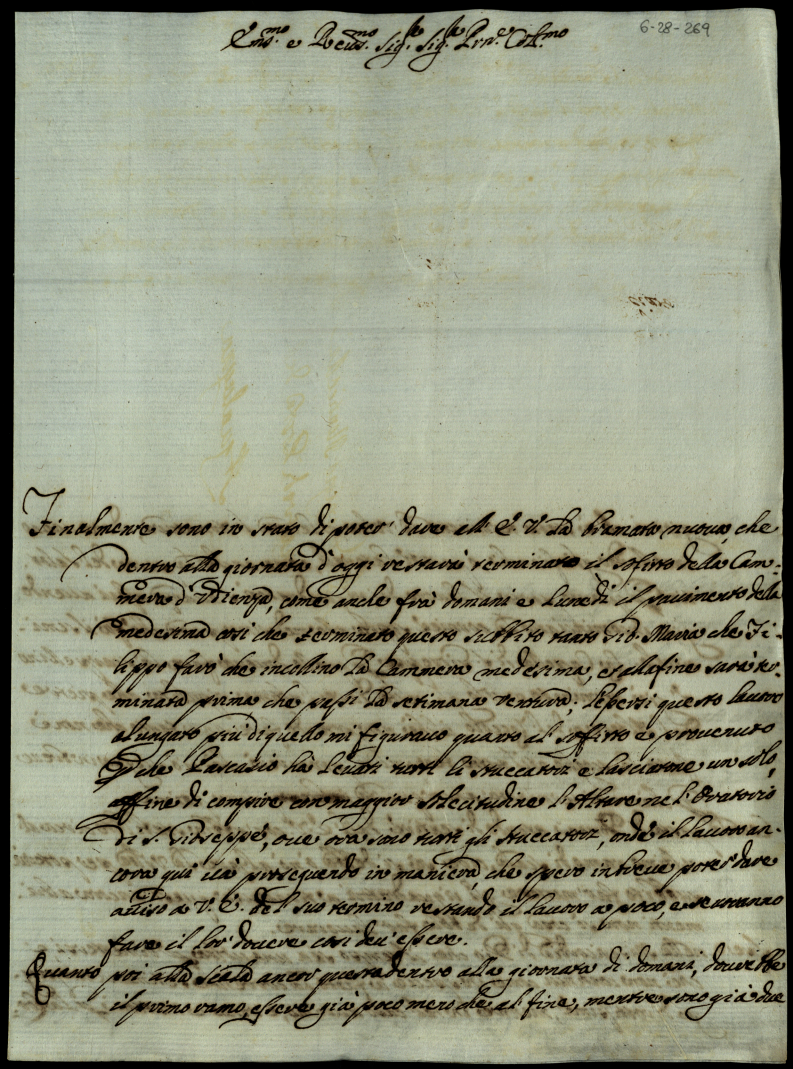 6-28-269
Em.mo e Reu.mo Sig.re Sig.re Prn.e Col.mo
Finalmente sono in stato di poter' dare all' E. V. la bramata nuoua, che
dentro alla giornata d'oggi restarà terminato il soffitto della Cam-
mera d'Vdienza, come anche frà domani e Lunedi il pauimento della
medesima cosi che terminato questo subbito tanto Gio. Maria che Fi-
lippo farò che incollino la Cammera medesima, et alla fine sarà ter-
minata prima che passi la setimana ventura; l'essersi questo lauoro
alungato più di quello mi figurauo quanto al soffitto è prouenuto
che Pascasio hà leuati tutti li stuccatori e lasciatone un solo,
affine di compire con maggior solecitudine l'Altare nel' Oratorio
di S. Gioseppe, oue ora sono tutti gli stuccatori, onde il lauoro an-
cora qui và proseguendo in maniera, che spero in breue poter' dare
auiso a V. E. del suo termino restando il lauoro a poco, e se uoranno
fare il lor' douere cosi deu' essere.
Quanto poi alla scala ancor questa dentro alla giornata di domani, dourebbe
il primo ramo essere già poco meno che al fine, mentre sono già due